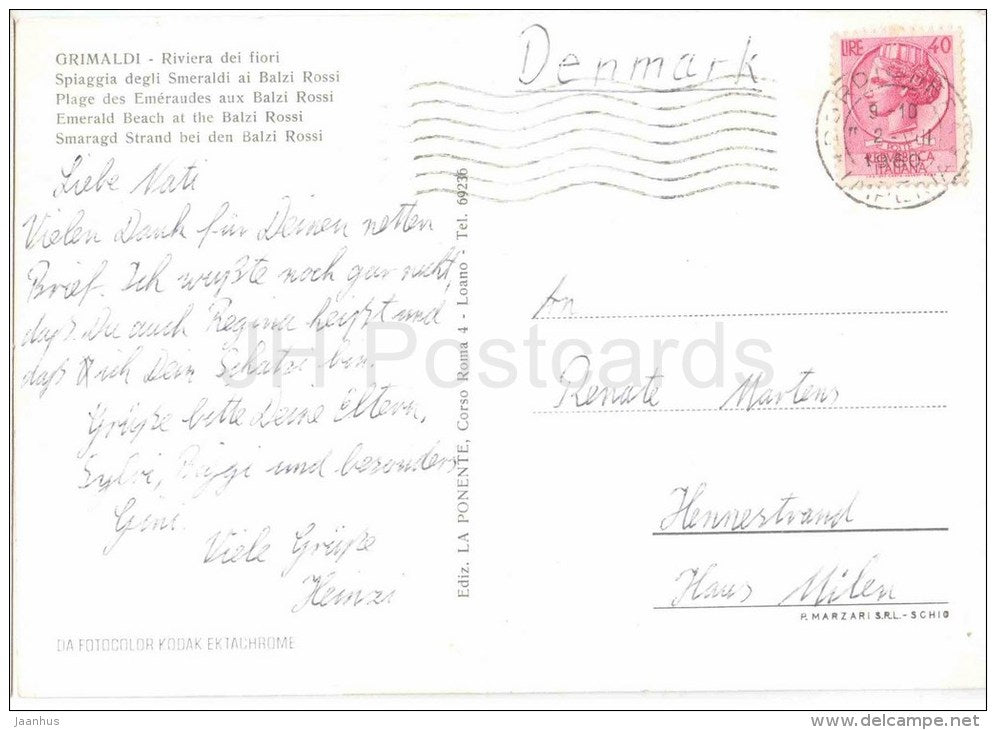 GRIMALDI - Riviera dei fiori
Spiaggia degli Smeraldi ai Balzi Rossi
Plage des Eméraudes aux Balzi Rossi
Emerald Beach at the Balzi Rossi
Smaragd Strand bei den Balzi Rossi
Denmark
LIRE 40
9-10
POSTE
REPVBBLICA
ITALIANA
Liebe Nati
Vielen Dank für Deinen netten
Brief. Ich wußte noch gar nicht,
daß Du auch Regina heißt und
daß ich Dein Schatzi bin.
Grüße bitte Deine Eltern,
Sylvi, und besonders
Gini.
Viele Grüße
Heinzi
DA FOTOCOLOR KODAK EKTACHROME
Ediz. LA PONENTE, Corso Roma 4 - Loano - Tel. 69236
An
Renate Martens
Hennestrand
Haus Milen
P. MARZARI S.R.L. - SCHIO
JH Postcards
Jaanhus
www.delcampe.net